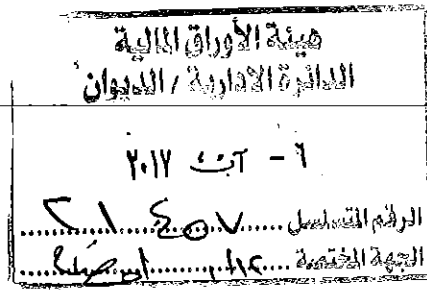 هيئة الأوراق المالية
الدائرة الادارية / الديوان
٦ - آب ٢٠١٧
الرقم المتسلسل
الجهة المختصة